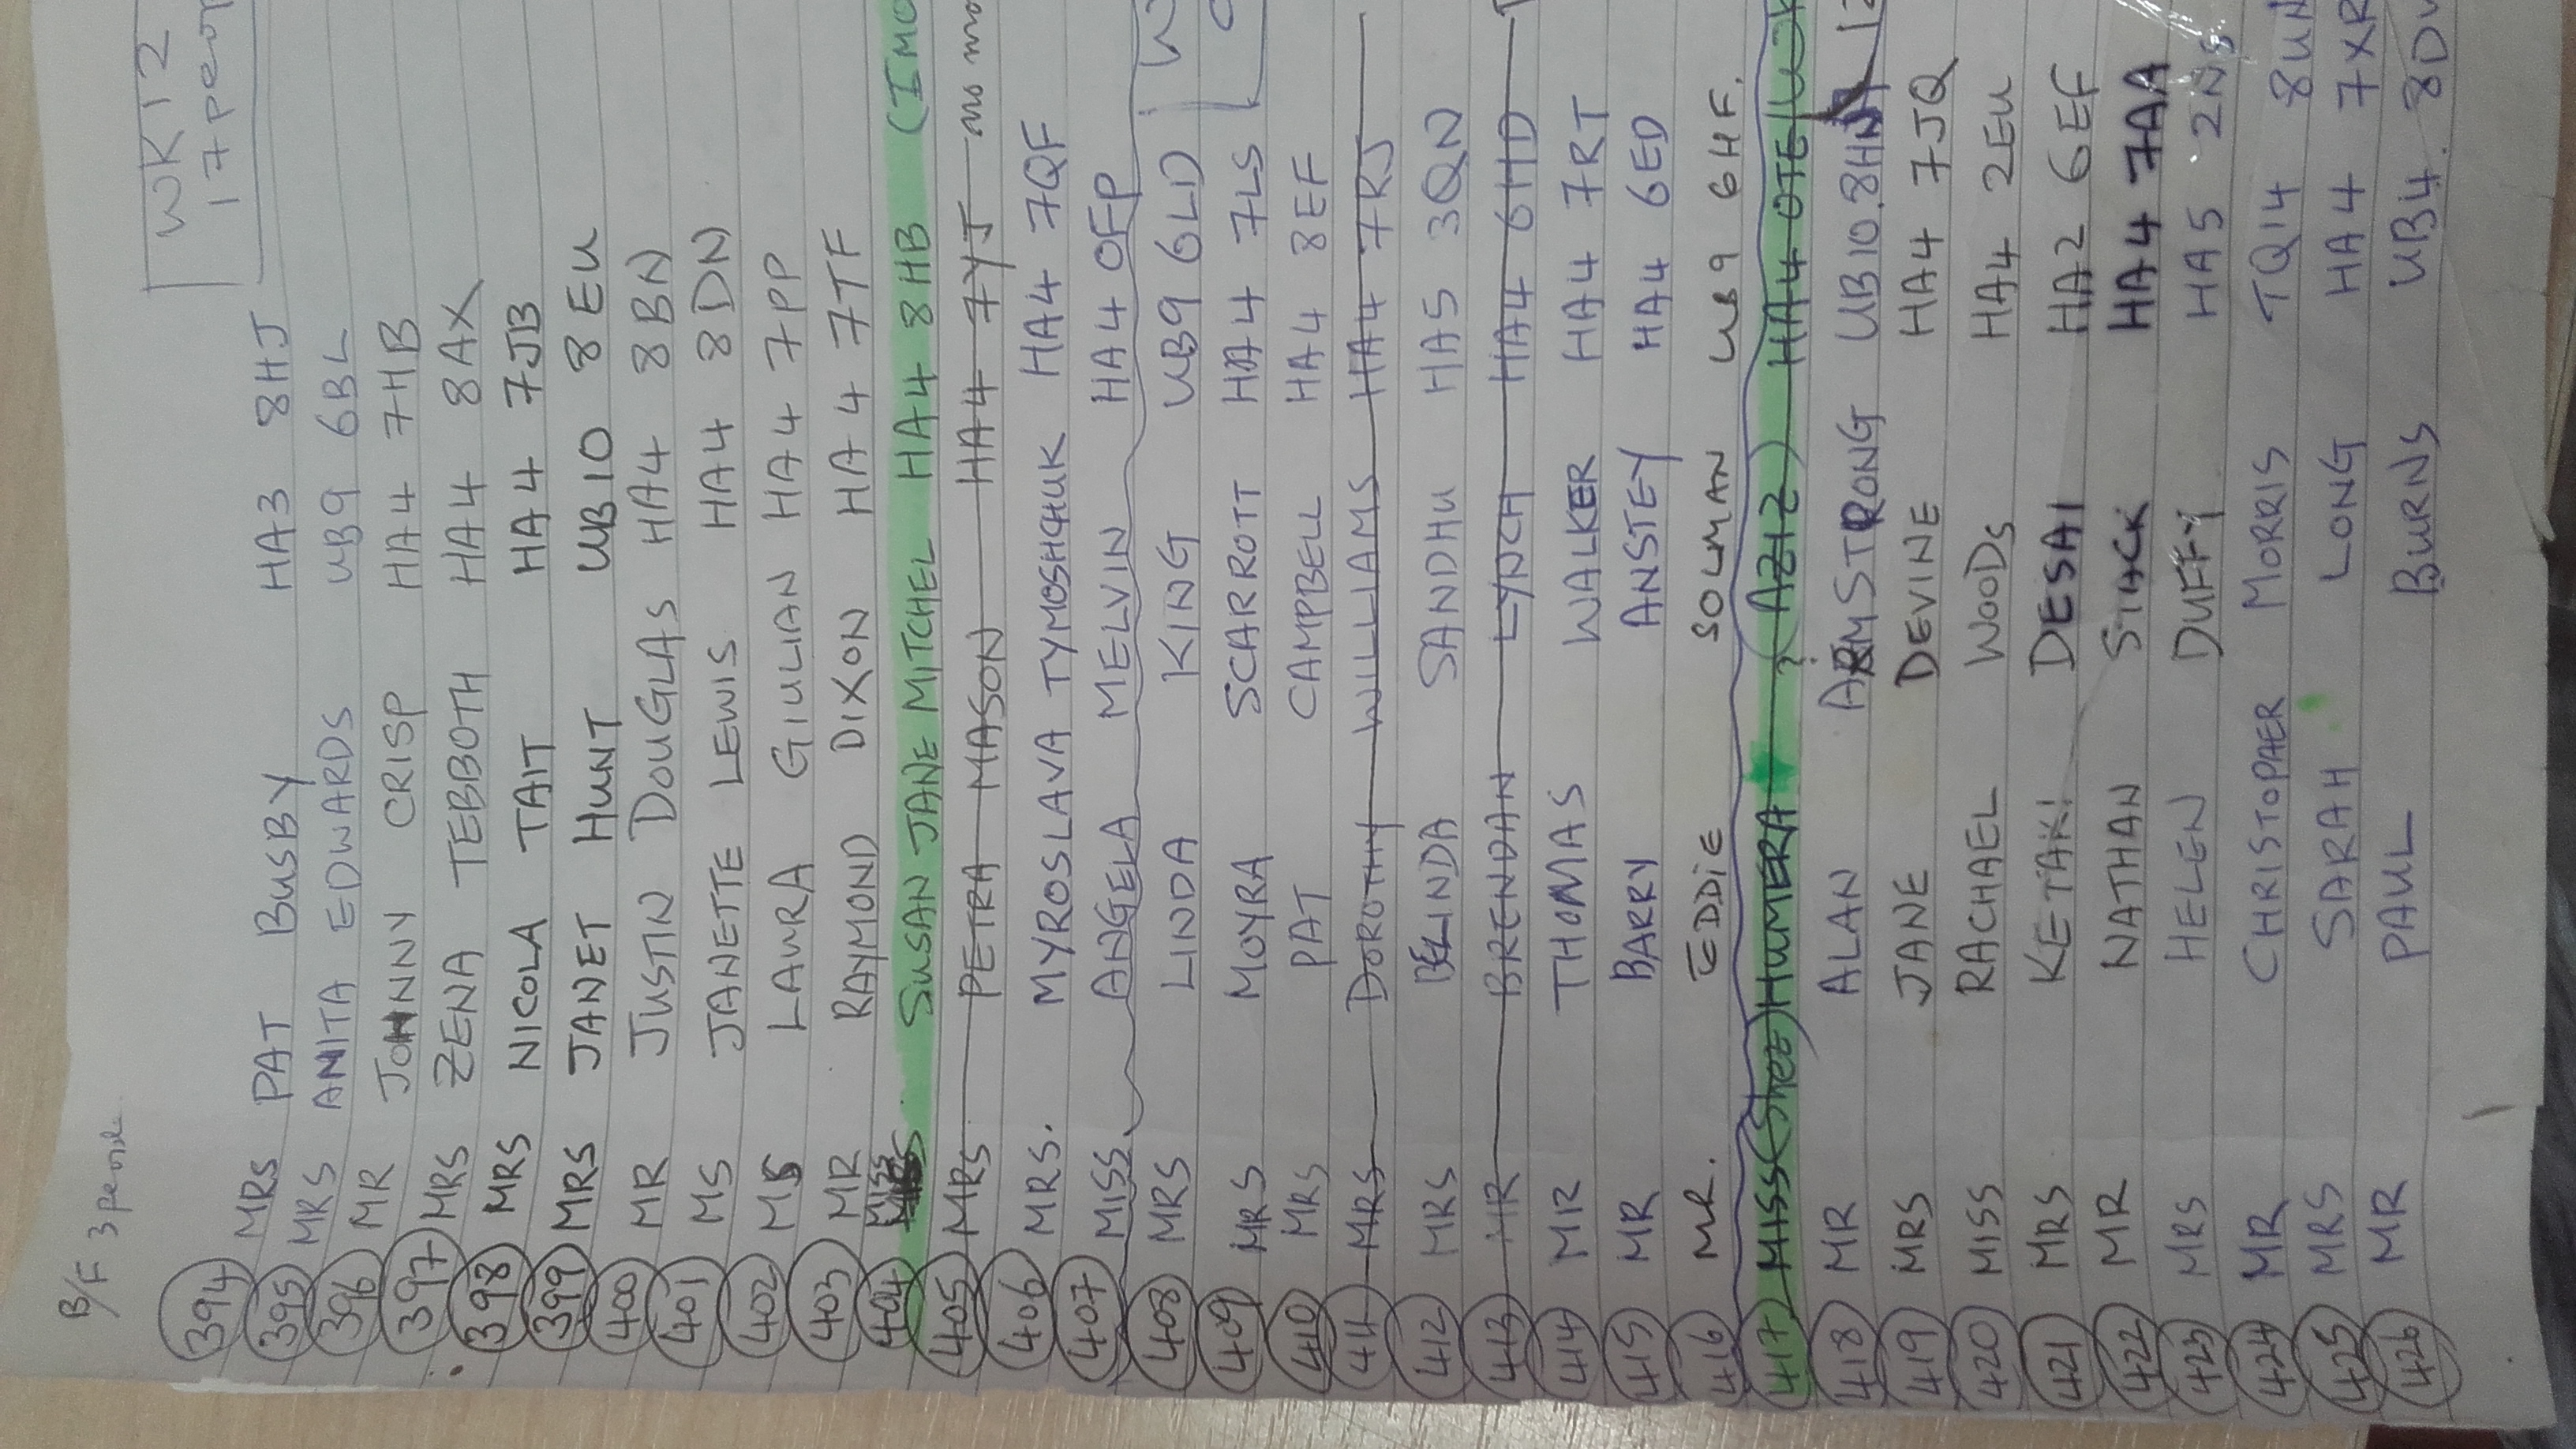 B/F 3 people
WK12
17 peop
394 MRS PAT BUSBY HA3 8HJ
395 MRS ANITA EDWARDS UB9 6BL
396 MR JOHNNY CRISP HA4 7HB
397 MRS ZENA TEBBOTH HA4 8AX
398 MRS NICOLA TAIT HA4 7JB
399 MRS JANET HUNT UB10 8EU
400 MR JUSTIN DOUGLAS HA4 8BN
401 MS JANETTE LEWIS HA4 8DN
402 MS LAURA GIULIAN HA4 7PP
403 MR RAYMOND DIXON HA4 7TF
404 MISS SUSAN JANE MITCHEL HA4 8HB (IMO
405 MRS PETRA MASON HA4 7YJ no mo
406 MRS. MYROSLAVA TYMOSHCHUK HA4 7QF
407 MISS. ANGELA MELVIN HA4 0FP
408 MRS LINDA KING UB9 6LD W
409 MRS MOYRA SCARROTT HA4 7LS
410 MRS PAT CAMPBELL HA4 8EF
411 MRS DOROTHY WILLIAMS HA4 7RJ
412 MRS BELINDA SANDHU HA5 3QN
413 MR BRENDAN LYNCH HA4 6HD
414 MR THOMAS WALKER HA4 7RT
415 MR BARRY ANSTEY HA4 6ED
416 MR. EDDIE SOLMAN UB9 6HF.
417 MISS (Shez) HUMERA ? (AZIZ) HA4 0TE
418 MR ALAN ARMSTRONG UB10.8HN 12
419 MRS JANE DEVINE HA4 7JQ
420 MISS RACHAEL WOODS HA4 2EU
421 MRS KETAKI DESAI HA2 6EF
422 MR NATHAN STACK HA4 7AA
423 MRS HELEN DUFFY HA5 2NS
424 MR CHRISTOPAER MORRIS TQ14 8UN
425 MRS SARAH LONG HA4 7XR
426 MR PAUL BURNS UB4. 8D